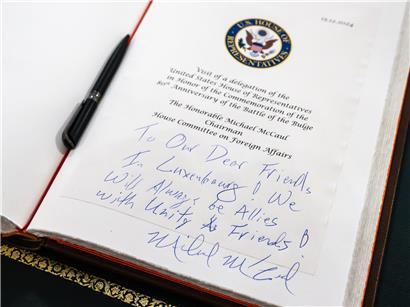 13.12.2024
U.S. HOUSE OF REPRESENTATIVES
Visit of a delegation of the
United States House of Representatives
in Honor of the Commemoration of the
80th Anniversary of the Battle of the Bulge
The Honorable Michael McCaul
Chairman
House Committee on Foreign Affairs
To Our Dear Friends
In Luxembourg! We
Will Always be Allies &
with Unity as Friends!
Michael McCaul